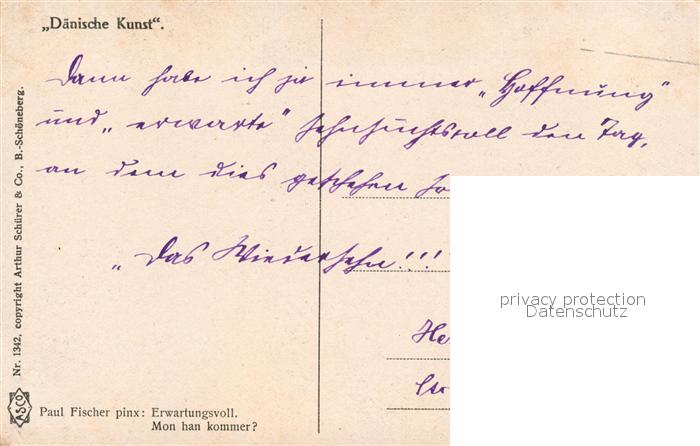 „Dänische Kunst“.
Dann habe ich ja immer „Hoffnung“
und „erwarte“ sehnsuchtsvoll den Tag,
an dem dies geschehen
„Das Wiedersehn!!!
privacy protection
Datenschutz
Nr. 1342, copyright Arthur Schürer & Co., B.-Schöneberg.
ASCO
Paul Fischer pinx: Erwartungsvoll.
Mon han kommer?